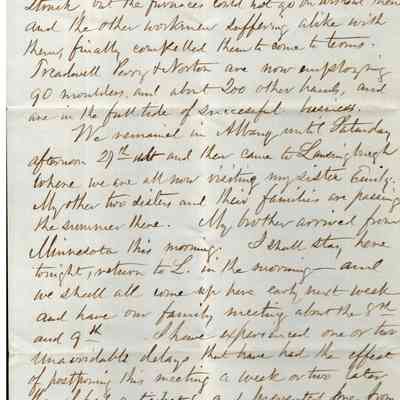 struck, but the furnaces could not go on without them
and the other workmen suffering alike with
them, finally compelled them to come to terms.
Treadwell Perry & Norton are now employing
90 moulders, and about 200 other hands, and
are in the full tide of successful business.
We remained in Albany until Saturday
afternoon 29th ult and then came to Lansingburgh
where we are all now visiting my sister Emily.
My other two sisters and their families are passing
the summer there. My brother arrived from
Minnesota this morning. I shall stay here
tonight, return to L. in the morning and
we shall all come up here early next week
and have our family meeting about the 8th
and 9th I have experienced one or two
unavoidable delays that have had the effect
of postponing this meeting a week or two later